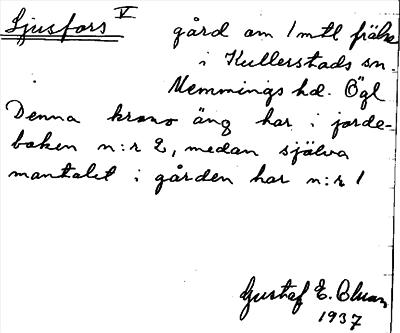 Ljusfors V gård om 1 mtl frälse
i Kullerstads sn.
Memmings hd. Ögl
Denna krono äng har i jorde-
boken n:r 2, medan själva
mantalet i gården har n:r 1
Gustaf E. Bluan
1937